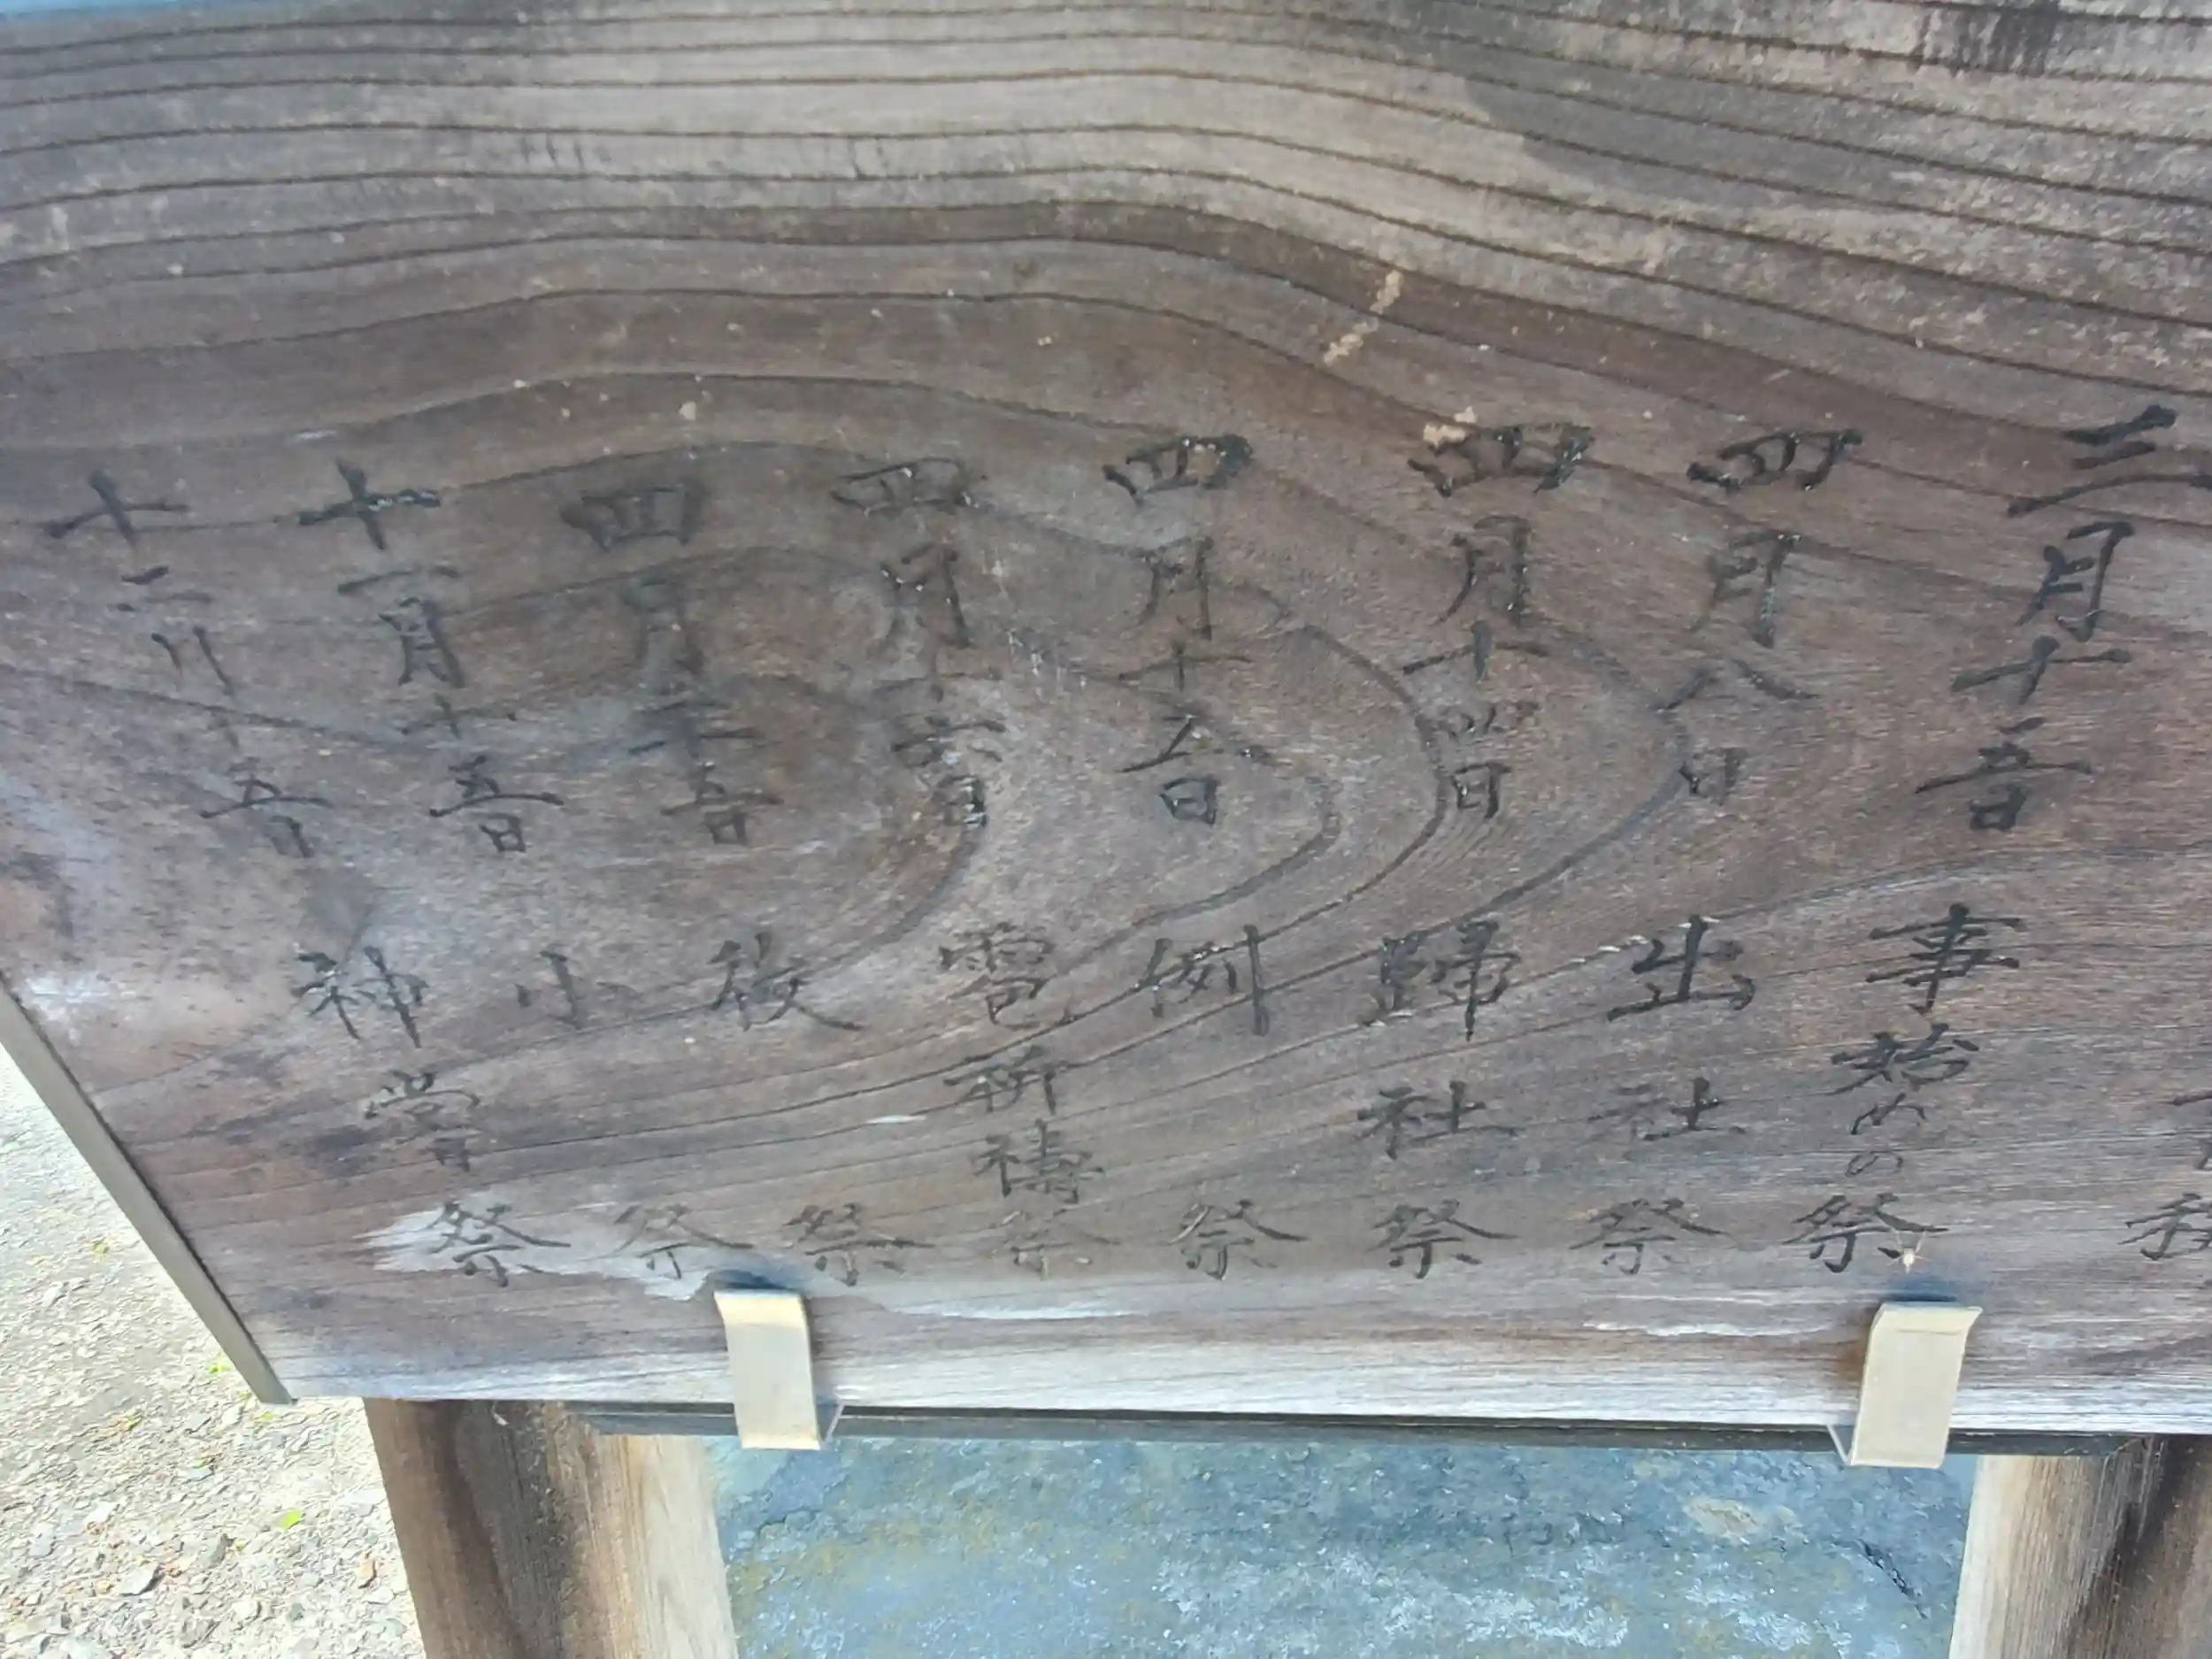 三月十五日 事始めの祭
四月八日 出社祭
四月十四日 歸社祭
四月十五日 例祭
四月十六日 雹祈祷祭
四月二十五日 後祭
十一月十五日 小祭
十二月十五日 神嘗祭